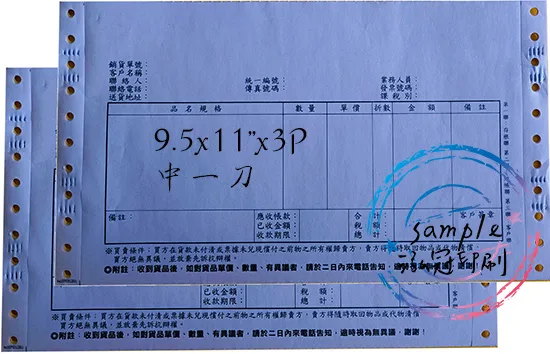 銷貨單號：
客戶名稱：
聯絡人： 統一編號： 業務人員：
聯絡電話： 傳真號碼： 發票號碼：
送貨地址： 課稅別：
品名規格 數量 單價 折數 金額 備註
9.5x11"x3P
中一刀
備註： 應收帳款： 合計： 客戶簽章
已收金額： 稅額：
收款期限： 總計：
sample
冠印刷
※買賣條件：買方在貨款未付清或票據未兌現償付之前物之所有權歸賣方，賣方得隨時取回物品或代物清償
買方絕無異議，並放棄先訴抗辯權。
◎附註：收到貨品後，如對貨品單價、數量、有異議者，請於二日內來電話告知，逾時視為無異議，謝謝！
已收金額： 稅額：
收款期限： 總計：
※買賣條件：買方在貨款未付清或票據未兌現償付之前物之所有權歸賣方，賣方得隨時取回物品或代物清償
買方絕無異議，並放棄先訴抗辯權。
◎附註：收到貨品後，如對貨品單價、數量、有異議者，請於二日內來電話告知，逾時視為無異議，謝謝！